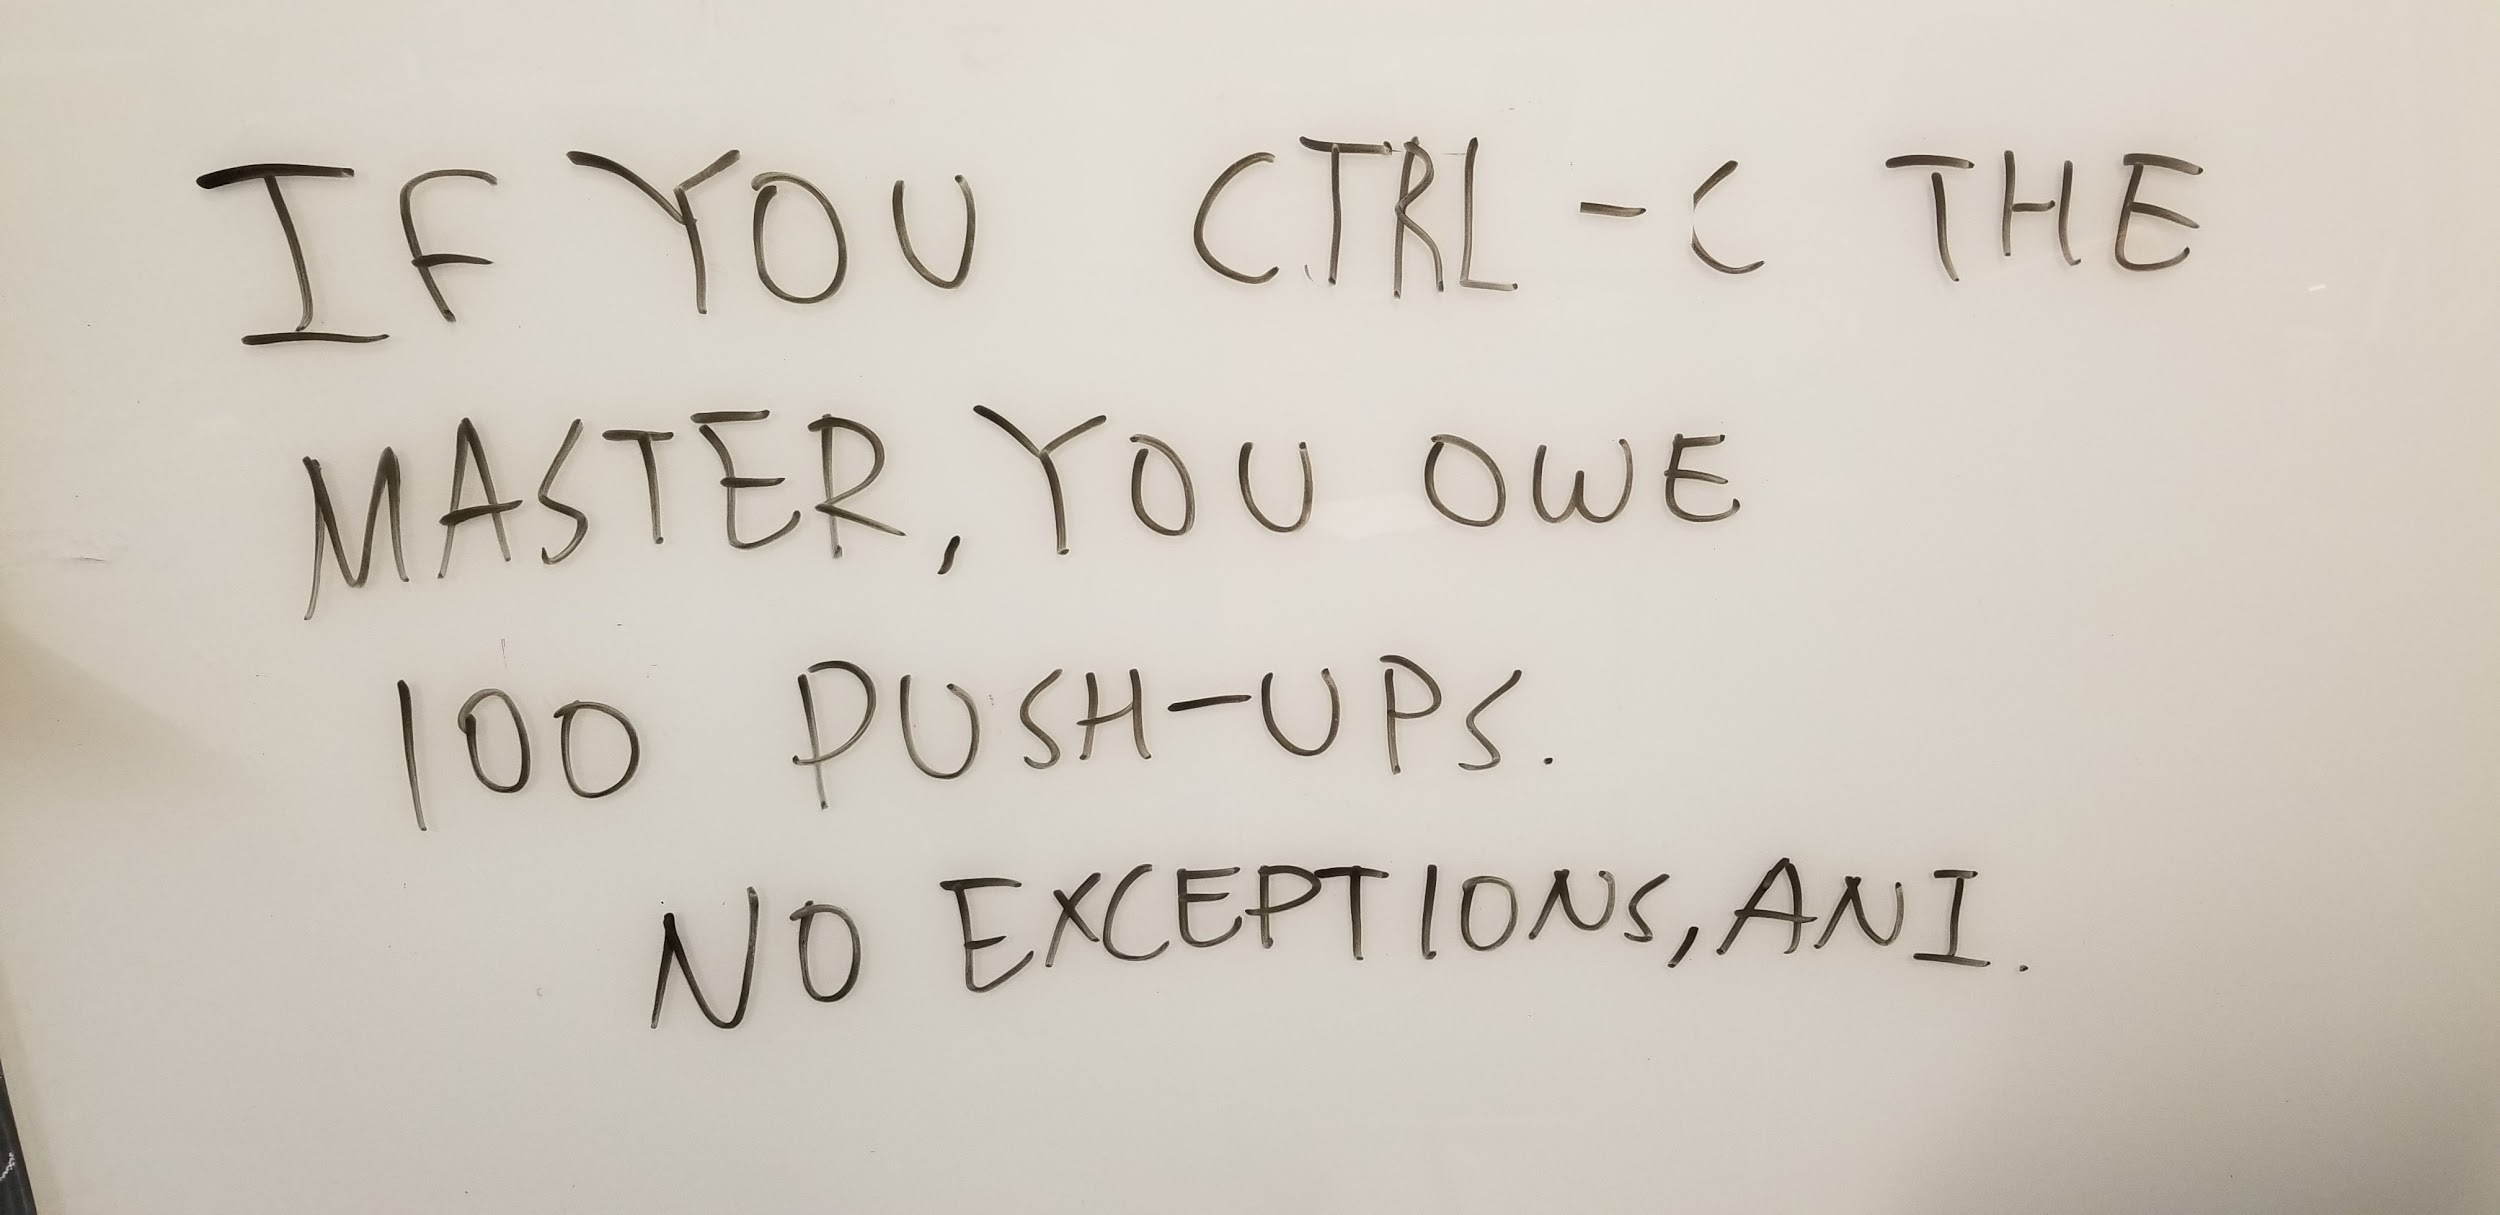 IF YOU CTRL-C THE
MASTER, YOU OWE
100 PUSH-UPS.
NO EXCEPTIONS, ANI.